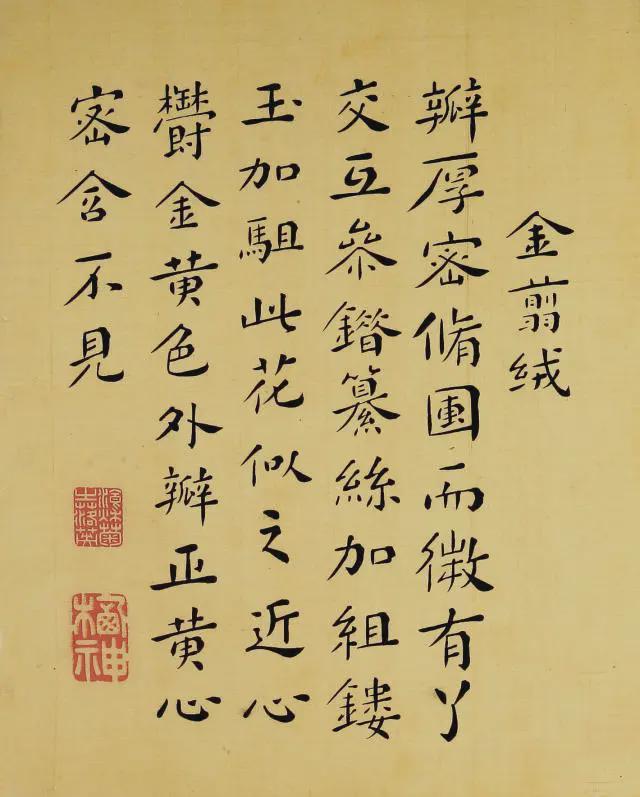 金翦絨
瓣厚密脩圓而微有丫
交互參鐕纂絲加組鏤
玉加駔此花似之近心
鬱金黄色外瓣正黄心
密含不見